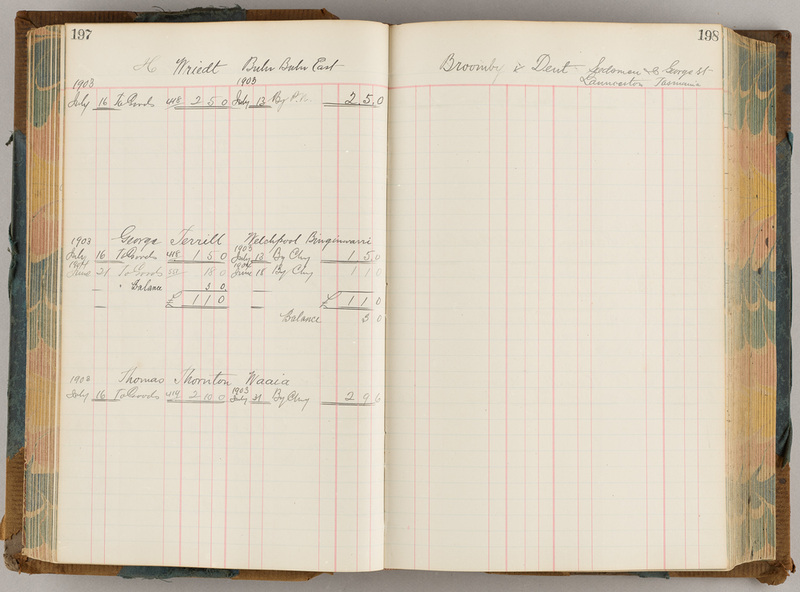 197
H Wriedt Bulu Bulu East
1903 1903
July 16 To Goods 418 2 5 0 July 13 By P. 2 5 0
1903 George Terrill Welchpool Binginwarri
1903
July 16 To Goods 418 1 5 0 July 13 By Chq 1 5 0
1904 1904
June 21 To Goods 18 0 June 18 By Chq 1 1 0
" Balance 3 0
£ 1 1 0 £ 1 1 0
Balance 3 0
1903 Thomas Thornton Waaia
1903
July 16 To Goods 419 2 10 0 July 21 By Chq 2 9 6
198
Broomby & Dent George St
Launceston Tasmania